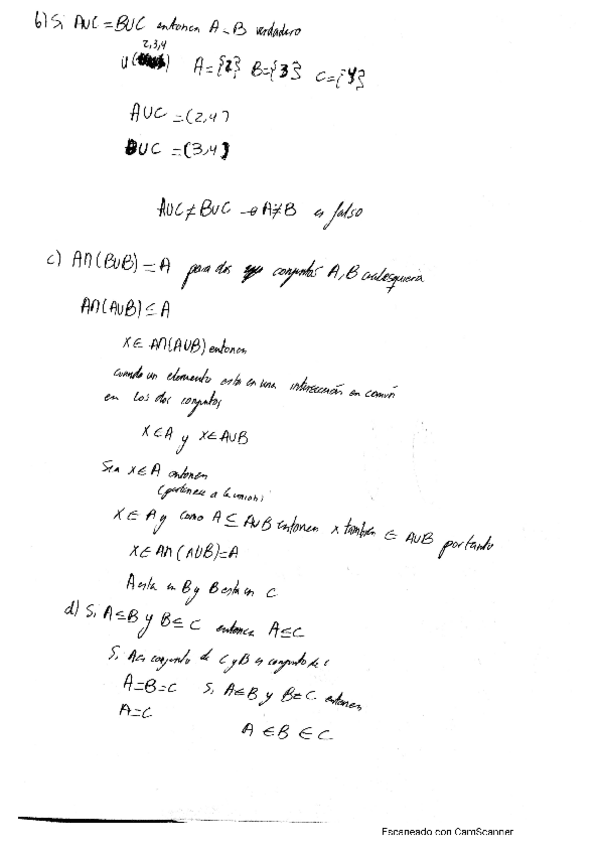 b) Si AUC = BUC entonces A = B verdadero
2,3,4
U ( ) A={2} B={3} C={4}
AUC = (2,4)
BUC = (3,4)
AUC ≠ BUC → A≠B es falso
c) A∩(BUB) = A para dos conjuntos A, B cualesquiera
A∩(AUB) ⊆ A
x ∈ A∩(AUB) entonces
cuando un elemento esta en una intersección en común
en los dos conjuntos
x ∈ A y x ∈ AUB
Sea x ∈ A entonces
(pertenece a la union)
x ∈ A y como A ⊆ AUB entonces x también ∈ AUB por tanto
x ∈ A∩(AUB)=A
A esta en B y B esta en C
d) Si A ⊆ B y B ⊆ C entonces A ⊆ C
Si A es conjunto de C y B es conjunto de C
A=B=C Si A ∈ B y B ∈ C entonces
A=C
A ∈ B ∈ C
Escaneado con CamScanner